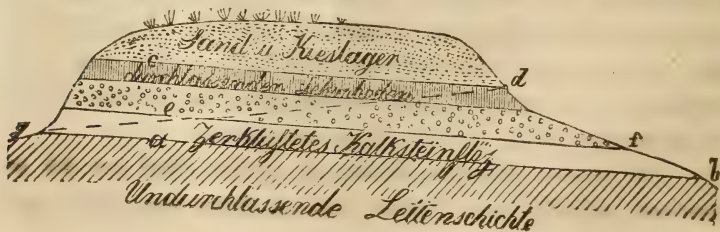 Sand u Kieslager
c
durchlassenden Lehmboden
d
e
g
a Zerklüftetes Kalksteinflöz
f
b
Undurchlassende Leitenschichte